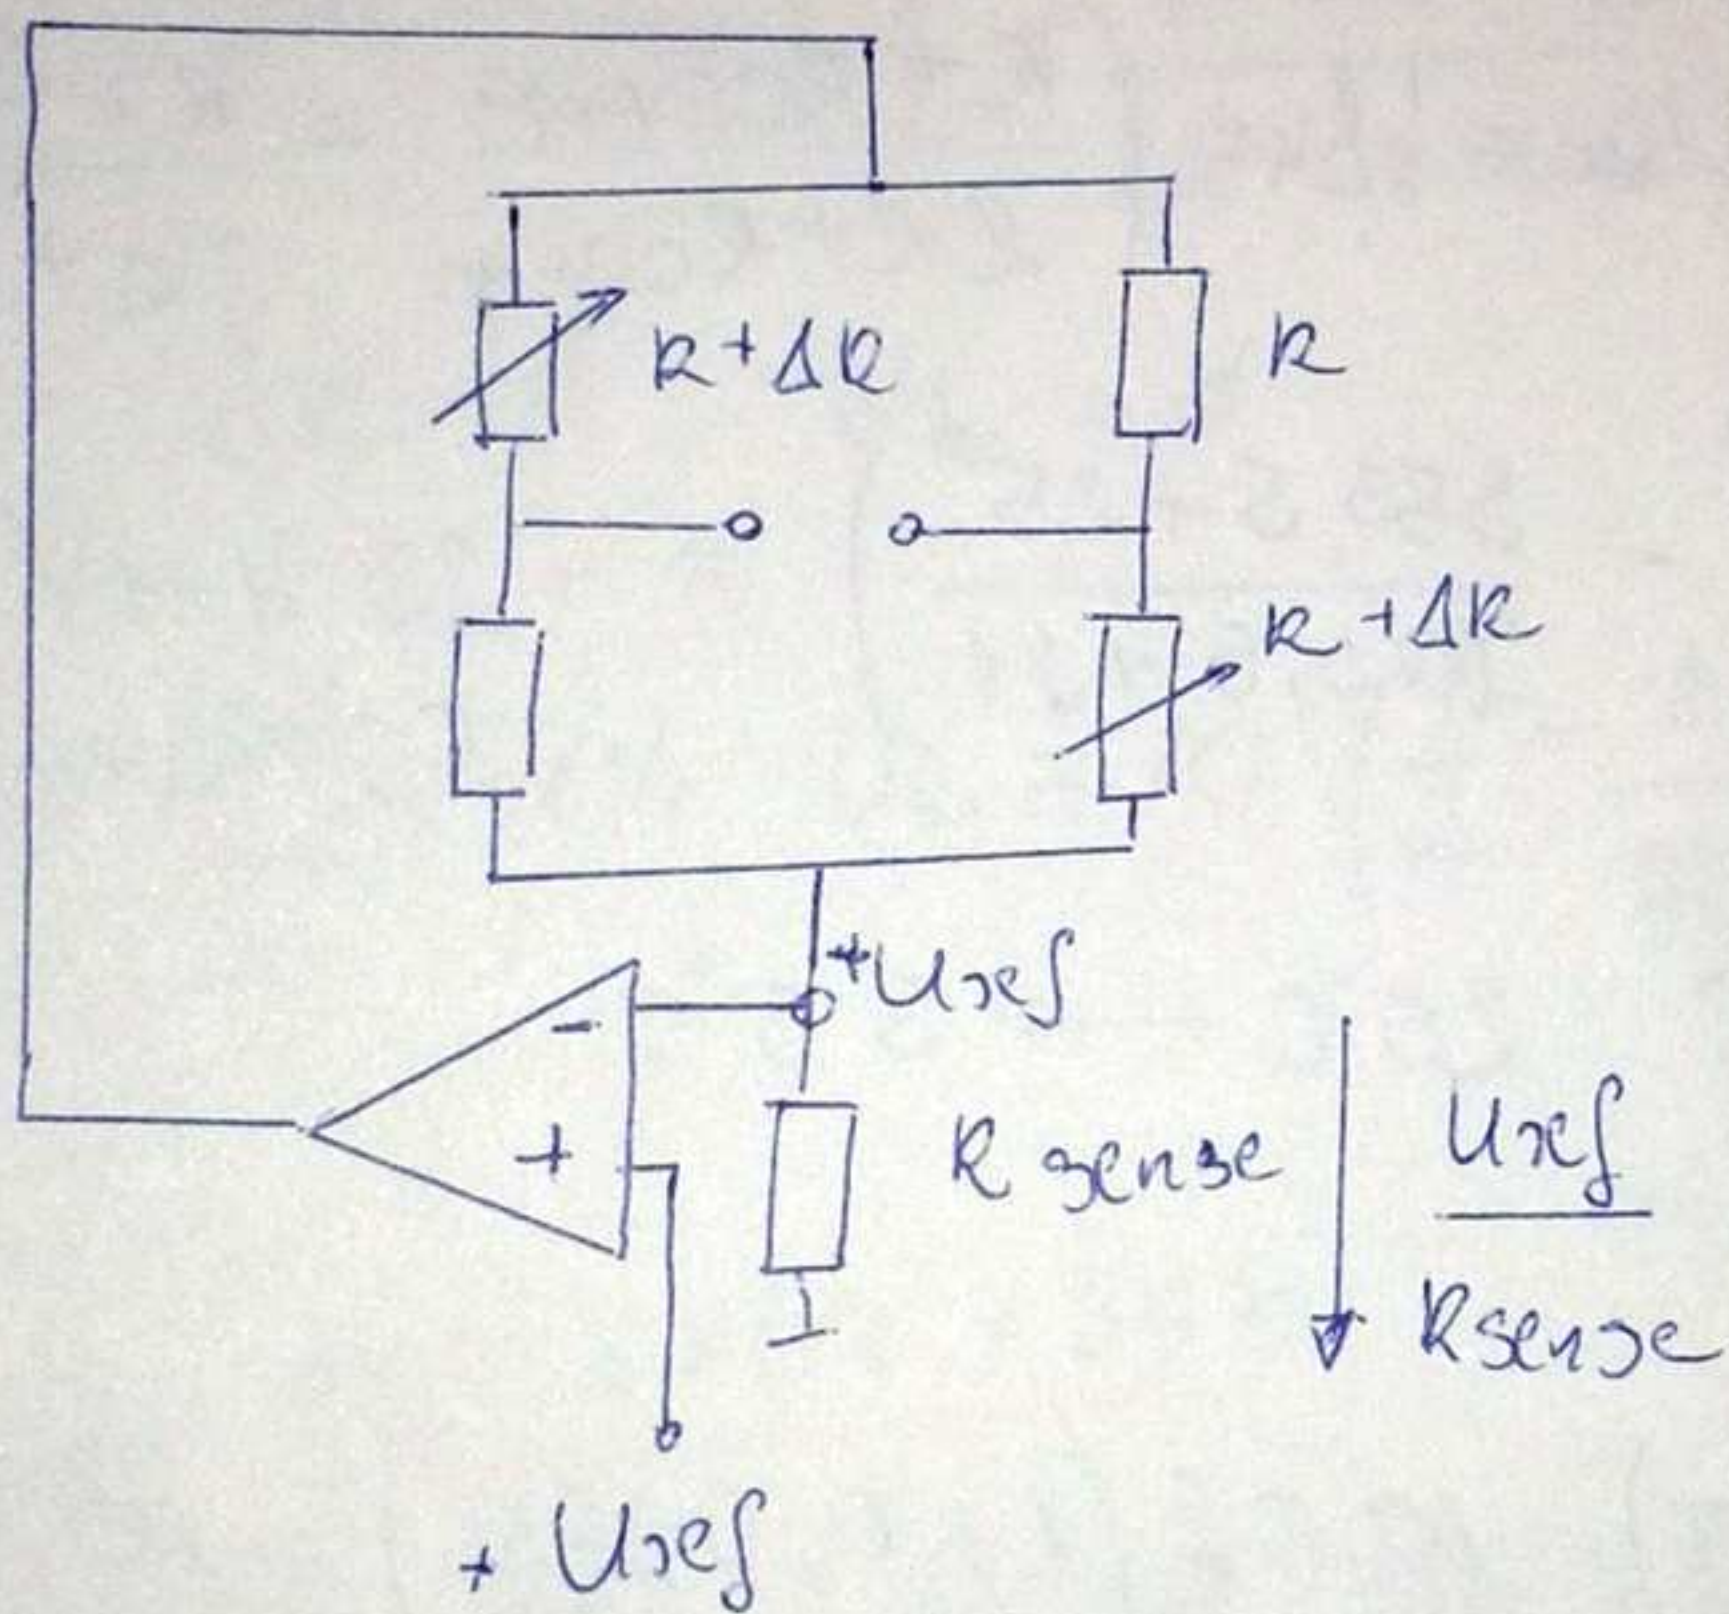 R+ΔR
R
R+ΔR
+Uref
-
+
R sense
Uref
Rsense
+ Uref